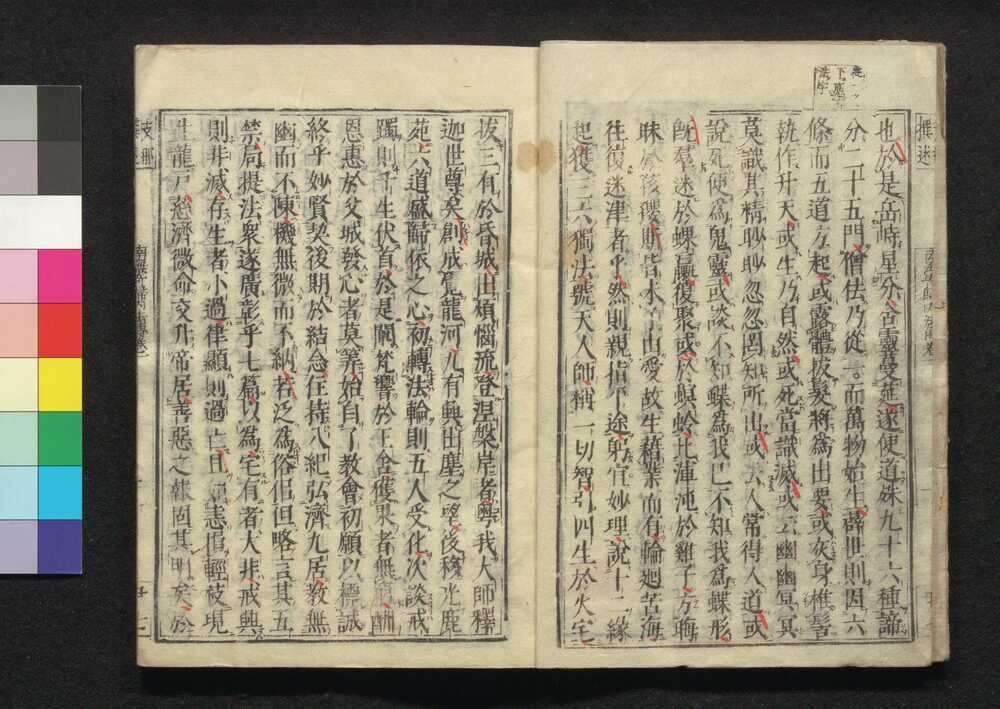 也於是岳峙星分含靈蔓莚遂使道殊九十六種諦
分二十五門僧佉乃從一而萬物始生薜世則因六
條而五道方起或露體拔髮將為出要或灰身椎髻
執作升天或生乃自然或死當識滅或云幽幽冥冥
莫識其精眇眇忽忽罔知所出或云人常得人道或
說死便為鬼靈或談不知蝶為我已不知我為蝶形
既群迷於蜾蠃復聚或於螟蛉比渾沌於雞子方晦
昧於孩稷斯皆未了由愛故生藉業而有輪迴苦海
往復迷津者乎然則親指平途躬宣妙理說十二緣
起獲三六獨法號天人師稱一切智引四生於火宅
拔三有於昏城出煩惱流登涅槃岸者粵我大師釋
迦世尊矣創成覺龍河九有興出塵之望後移光鹿
苑六道盛歸依之心初轉法輪則五人受化次談戒
躅則千生伏首於是闡梵響於王舍獲果者無窮酬
恩惠於父城發心者莫筭始自了教會初願以標誠
終乎妙賢契後期於結念住持八紀弘濟九居教無
幽而不陳機無微而不納若泛為俗侶但略言其五
禁局提法衆遂廣彰乎七篇以為宅有者大非戒興
則非滅存生者小過律顯則過亡且如恚損輕枝現
生龍戶慈濟微命交升帝居善惡之報固其明矣於